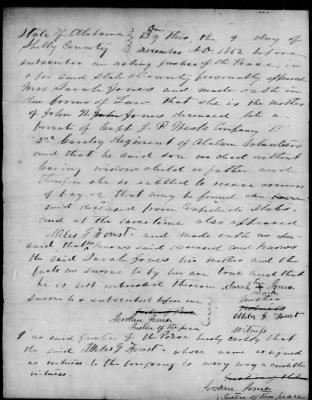 State of Alabama } On
Shelby County } By this, the 4 day of
December A.D. 1862 before
subscriber an acting Justice of the Peace in
& for said State & County personally appeared
Mrs Sarah Jones and made oath in
due forms of Law that she is the mother
of John W. Jones deceased late a
private of Capt. J. P. West's Company B
2nd Cavalry Regiment of Alabam Volunteers
and that he said son in died without
leaving widow child or father and
therefore she is entitled to receive arrears
of pay or that may be found due
said deceased from Confederate States.
and at the same time also appeared
Miles G Foust and made oath as afore
said that he knows said deceased and knows
the said Sarah Jones his mother and the
facts as sworn to by her are true and that
he is not interested therein Sarah her X mark Jones
Sworn to & subscribed before me mother
Miles G Foust
Jordan Jones Witness
Justice of the peace
I as said Justice of the Peace hereby certify that
the said Miles G Foust whose name is signed
as witness to the foregoing is every way a credible
witness.
Jordan Jones
Justice of the peace